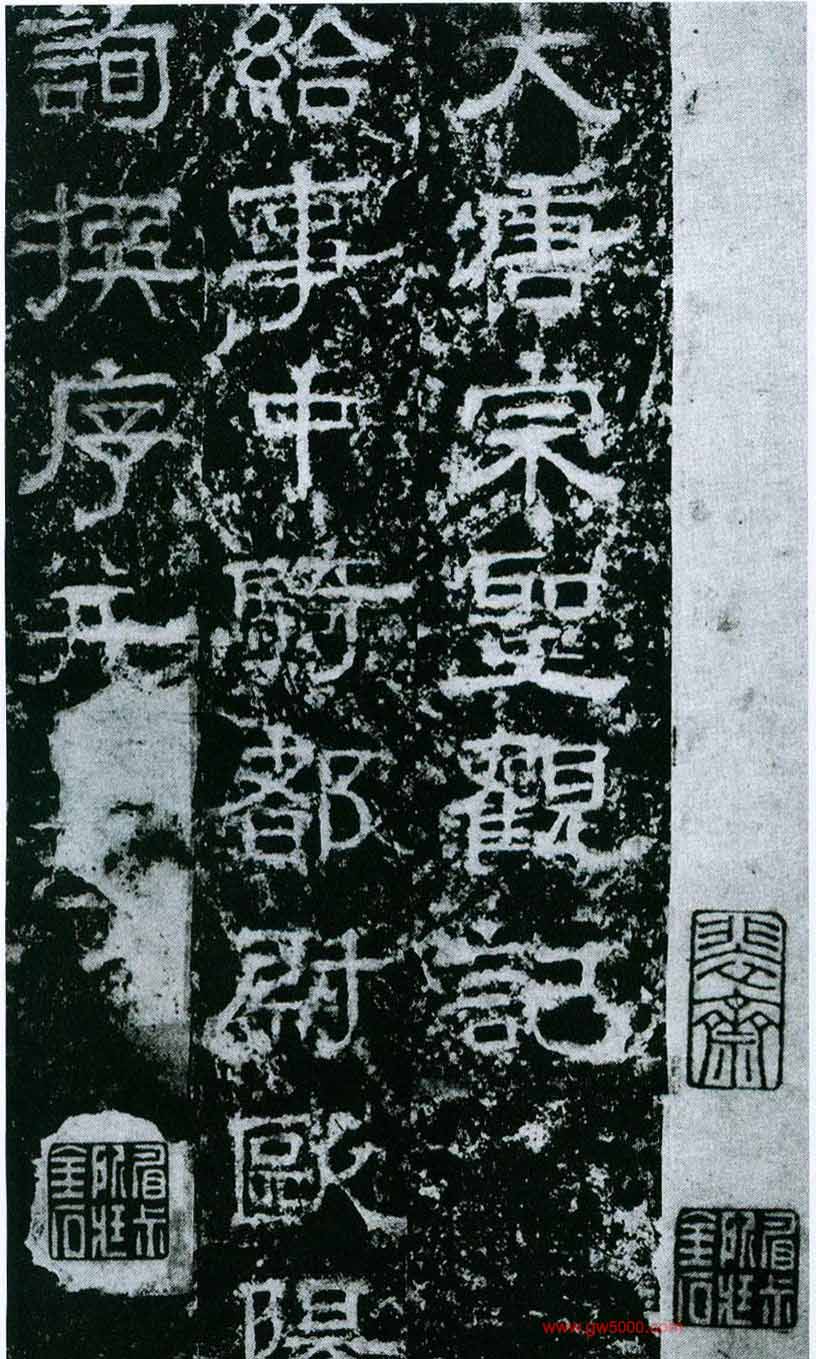 大唐宗聖觀記
給事中騎都尉歐陽
詢撰序并
www.gw5000.com